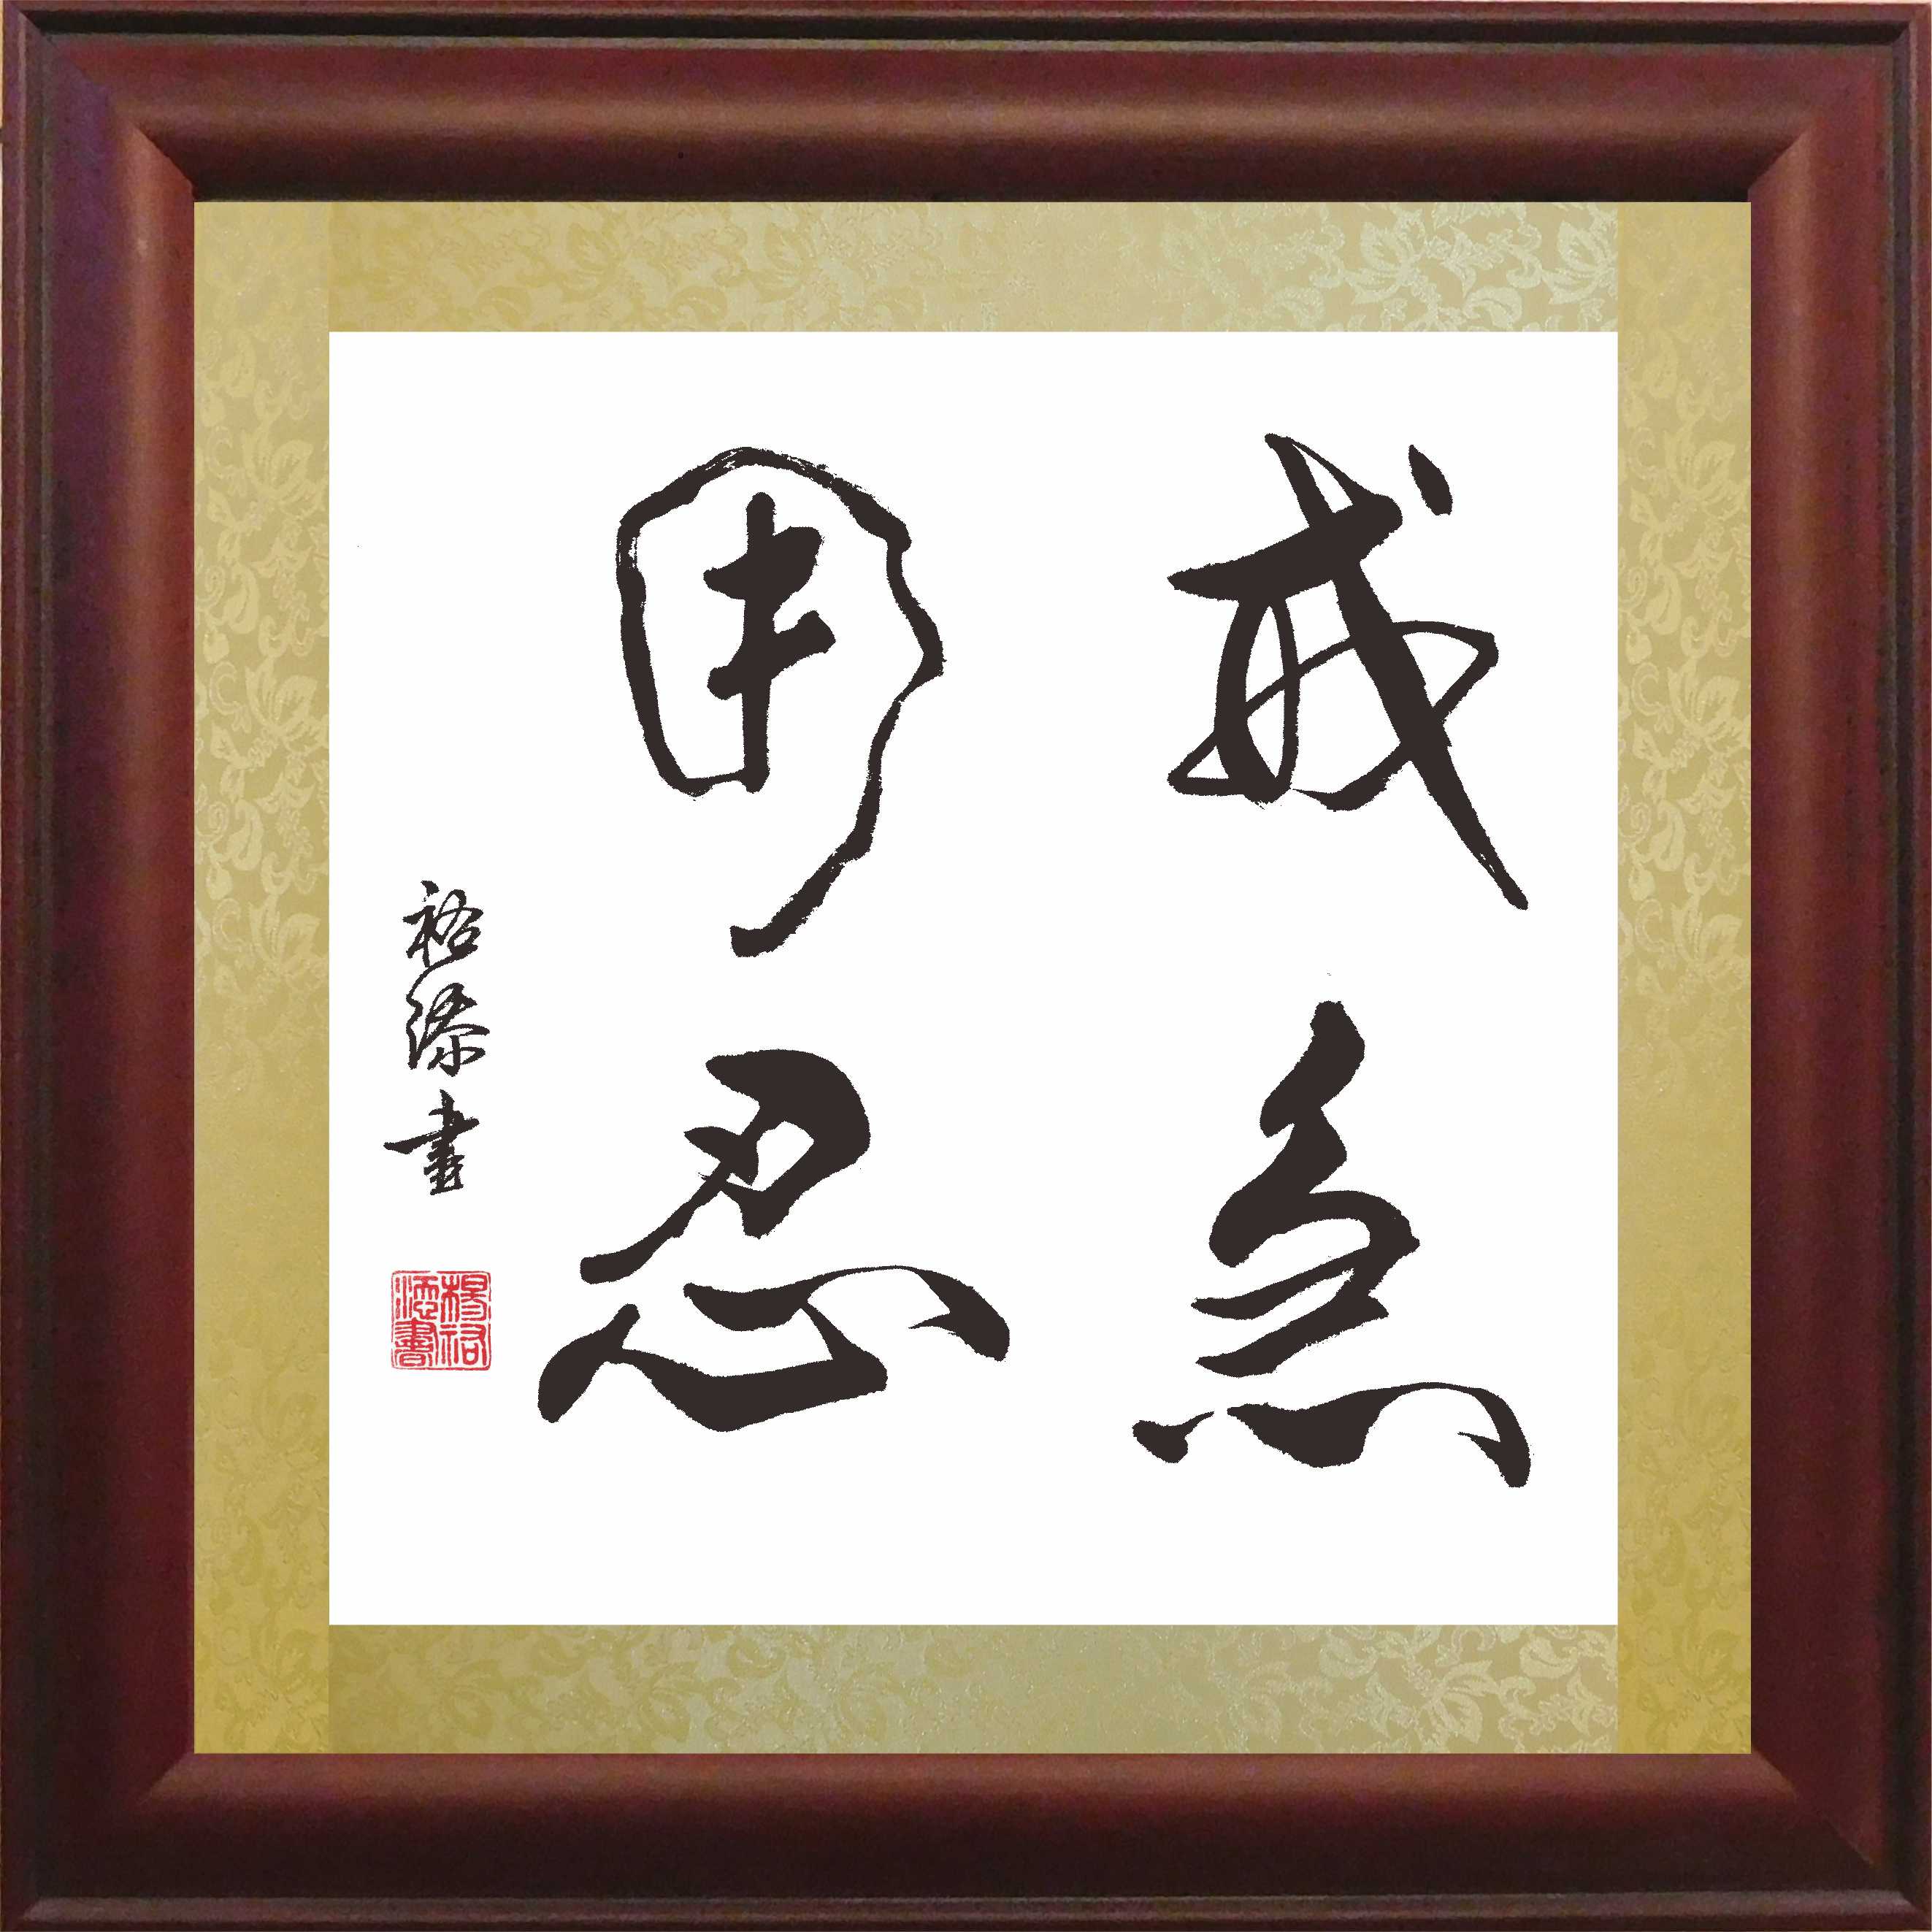 戒急
用忍
裕添書
楊裕
添書